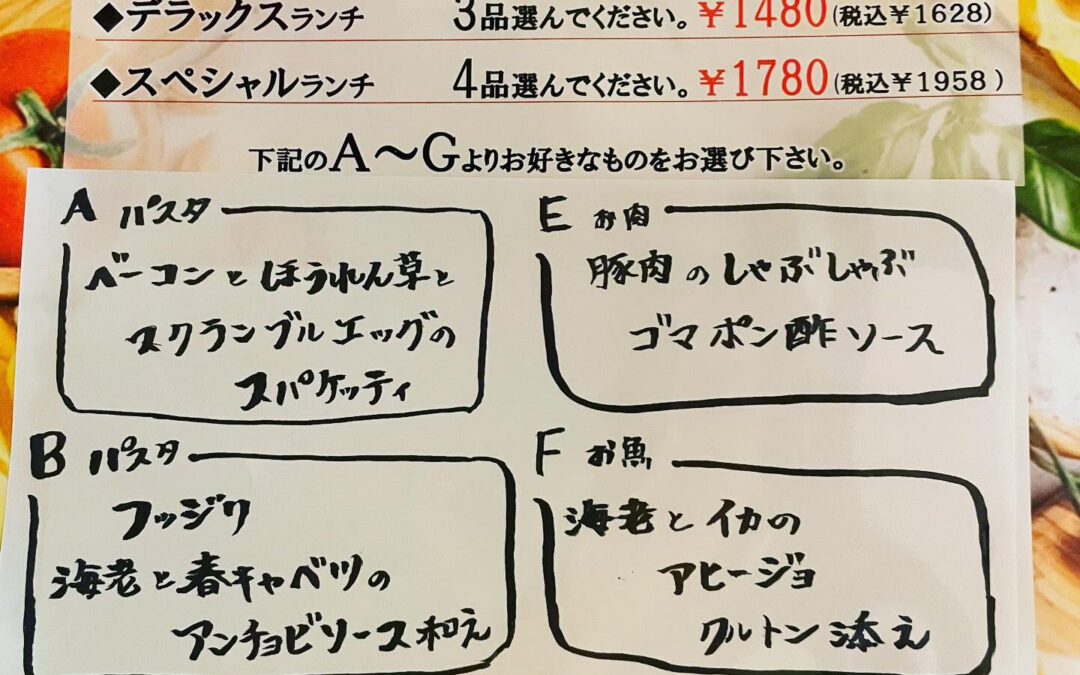 ◆デラックスランチ 3品選んでください。¥1480(税込¥1628)
◆スペシャルランチ 4品選んでください。¥1780(税込¥1958)
下記のA～Gよりお好きなものをお選び下さい。
A パスタ
ベーコンとほうれん草と
スクランブルエッグの
スパゲッティ
B パスタ
フッジリ
海老と春キャベツの
アンチョビソース和え
E お肉
豚肉のしゃぶしゃぶ
ゴマポン酢ソース
F お魚
海老とイカの
アヒージョ
クルトン添え